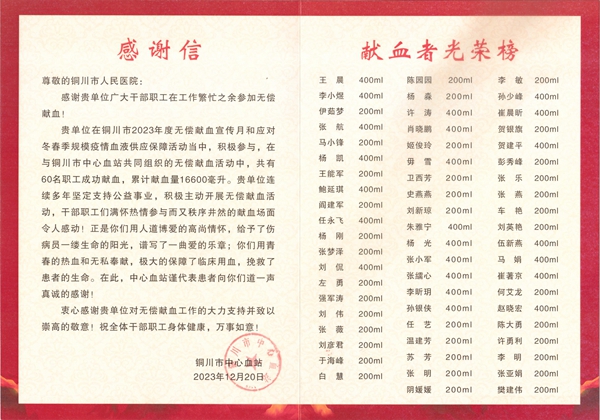 感谢信
尊敬的铜川市人民医院：
感谢贵单位广大干部职工在工作繁忙之余参加无偿
献血！
贵单位在铜川市2023年度无偿献血宣传月和应对
冬春季规模疫情血液供应保障活动当中，积极参与，在
与铜川市中心血站共同组织的无偿献血活动中，共有
60名职工成功献血，累计献血量16600毫升。贵单位连
续多年坚定支持公益事业，积极主动开展无偿献血活
动，干部职工们满怀热情参与而又秩序井然的献血场面
令人感动！正是你们用人道博爱的高尚情怀，给予了伤
病员一缕生命的阳光，谱写了一曲爱的乐章；你们用青
春的热血和无私奉献，极大的保障了临床用血，挽救了
患者的生命。在此，中心血站谨代表患者向你们道一声
真诚的感谢！
衷心感谢贵单位对无偿献血工作的大力支持并致以
崇高的敬意！祝全体干部职工身体健康，万事如意！
铜川市中心血站
2023年12月20日
献血者光荣榜
王 晨 400ml 陈园园 200ml 李 敏 200ml
李小煜 400ml 杨 淼 200ml 孙少峰 400ml
伊茹梦 200ml 许 涛 400ml 崔晨昕 400ml
张 航 400ml 肖晓鹏 400ml 贺银旗 200ml
马小锋 200ml 姬俊玲 200ml 贺建军 400ml
杨 凯 400ml 毋 雪 400ml 彭秀峰 200ml
王能军 200ml 卫西芳 200ml 张 乐 200ml
鲍延琪 400ml 史燕燕 200ml 张 燕 200ml
阎建军 200ml 刘新琼 200ml 车 艳 200ml
任永飞 400ml 朱雅宁 400ml 刘英艳 200ml
杨 刚 200ml 杨 光 400ml 伍新燕 400ml
张梦泽 200ml 张小军 400ml 马 娟 400ml
刘 侃 400ml 张缳心 400ml 崔著京 400ml
左 勇 200ml 李昕玥 400ml 何艾龙 200ml
强军涛 200ml 孙银侠 400ml 赵晓宏 400ml
刘 伟 200ml 任 艺 200ml 陈大勇 200ml
张 薇 200ml 温建芳 200ml 许勇利 200ml
刘彦君 200ml 苏 芳 200ml 李 明 200ml
于海峰 200ml 张 明 200ml 张亚娟 200ml
白 慧 200ml 阴媛媛 200ml 樊建伟 200ml